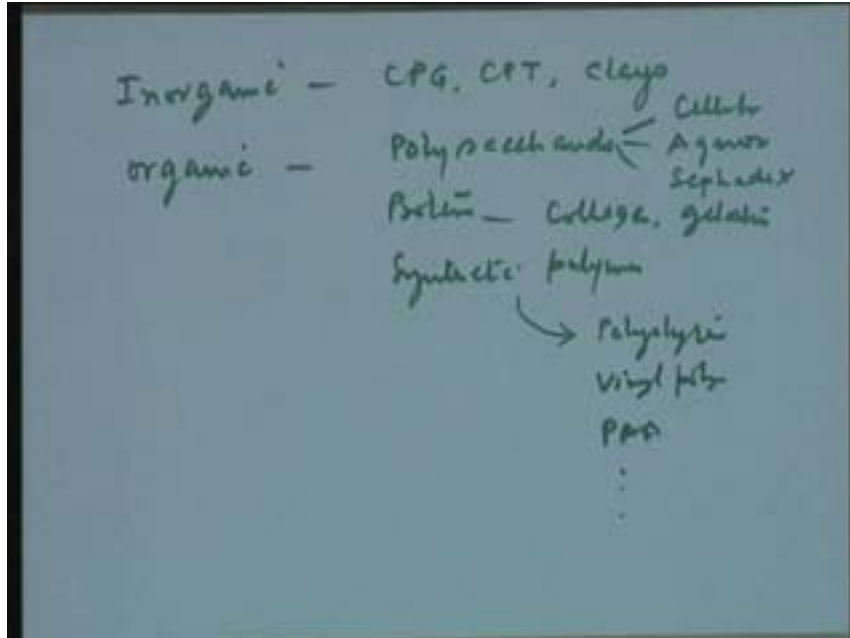 Inorganic - CPG, CPT, clays
Cellulo
organic - Polysaccharide - Agarose
Sephadex
Protein - Collagen, gelatin
Synthetic polymer
Polylysine
Vinyl poly
PAA